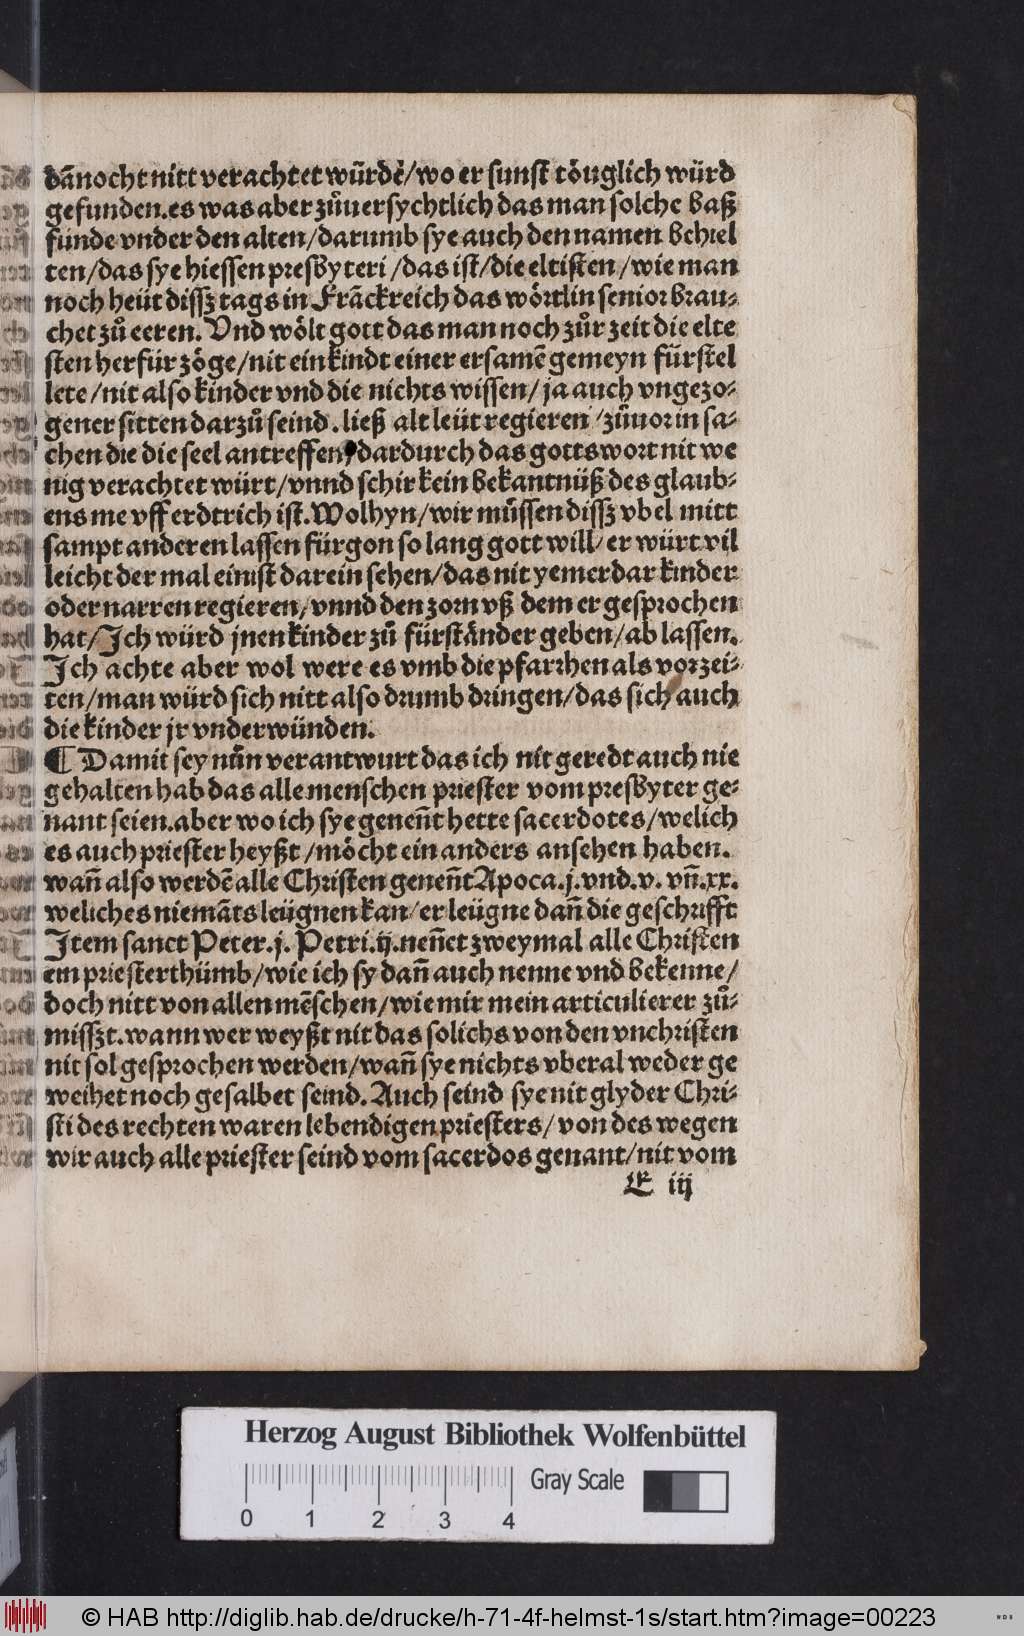 dānocht nitt verachtet wūrdē/wo er sunst töuglich würd
gefunden.es was aber zůuersychtlich das man solche baß
funde vnder den alten/darumb sye auch den namen behiel
ten/das sye hiessen presbyteri/das ist/die eltisten/wie man
noch heüt dissz tags in Frāckreich das wörtlin senior brau-
chet zů eeren. Vnd wölt gott das man noch zůr zeit die elte
sten herfür zöge/nit ein kindt einer ersamē gemeyn fürstel
lete/nit also kinder vnd die nichts wissen/ja auch vngezo-
gener sitten darzů seind.ließ alt leüt regieren/zůuor in sa-
chen die die seel antreffen/dardurch das gotts wort nit we
nig verachtet würt/vnnd schir kein bekantnüß des glaub-
ens me vff erdtrich ist.Wolhyn/wir müssen dissz vbel mitt
sampt anderen lassen fürgon so lang gott will/er würt vil
leicht der mal einist darein sehen/das nit yemerdar kinder
oder narren regieren/vnnd den zorn vß dem er gesprochen
hat/Ich würd jnen kinder zů fürständer geben/ab lassen.
Ich achte aber wol were es vmb die pfarrhen als vorzei-
ten/man würd sich nitt also drumb dringen/das sich auch
die kinder jr vnderwünden.
¶ Damit sey nůn verantwurt das ich nit geredt auch nie
gehalten hab das alle menschen priester vom presbyter ge-
nant seien.aber wo ich sye genen̄t hette sacerdotes/welich
es auch priester heyßt/möcht ein anders ansehen haben.
wan̄ also werdē alle Christen genen̄t Apoca.j.vnd.v. vn̄.xx.
weliches niemāts leügnen kan/er leügne dan̄ die geschrifft
Item sanct Peter.j. Petri.ij.nen̄et zweymal alle Christen
em priesterthümb/wie ich sy dan̄ auch nenne vnd bekenne/
doch nitt von allen mēschen/wie mir mein articulierer zů-
misszt.wann wer weyßt nit das solichs von den vnchristen
nit sol gesprochen werden/wan̄ sye nichts vberal weder ge
weihet noch gesalbet seind. Auch seind sye nit glyder Chri-
sti des rechten waren lebendigen priesters/von des wegen
wir auch alle priester seind vom sacerdos genant/nit vom
E iij
Herzog August Bibliothek Wolfenbüttel
Gray Scale
0 1 2 3 4
© HAB http://diglib.hab.de/drucke/h-71-4f-helmst-1s/start.htm?image=00223